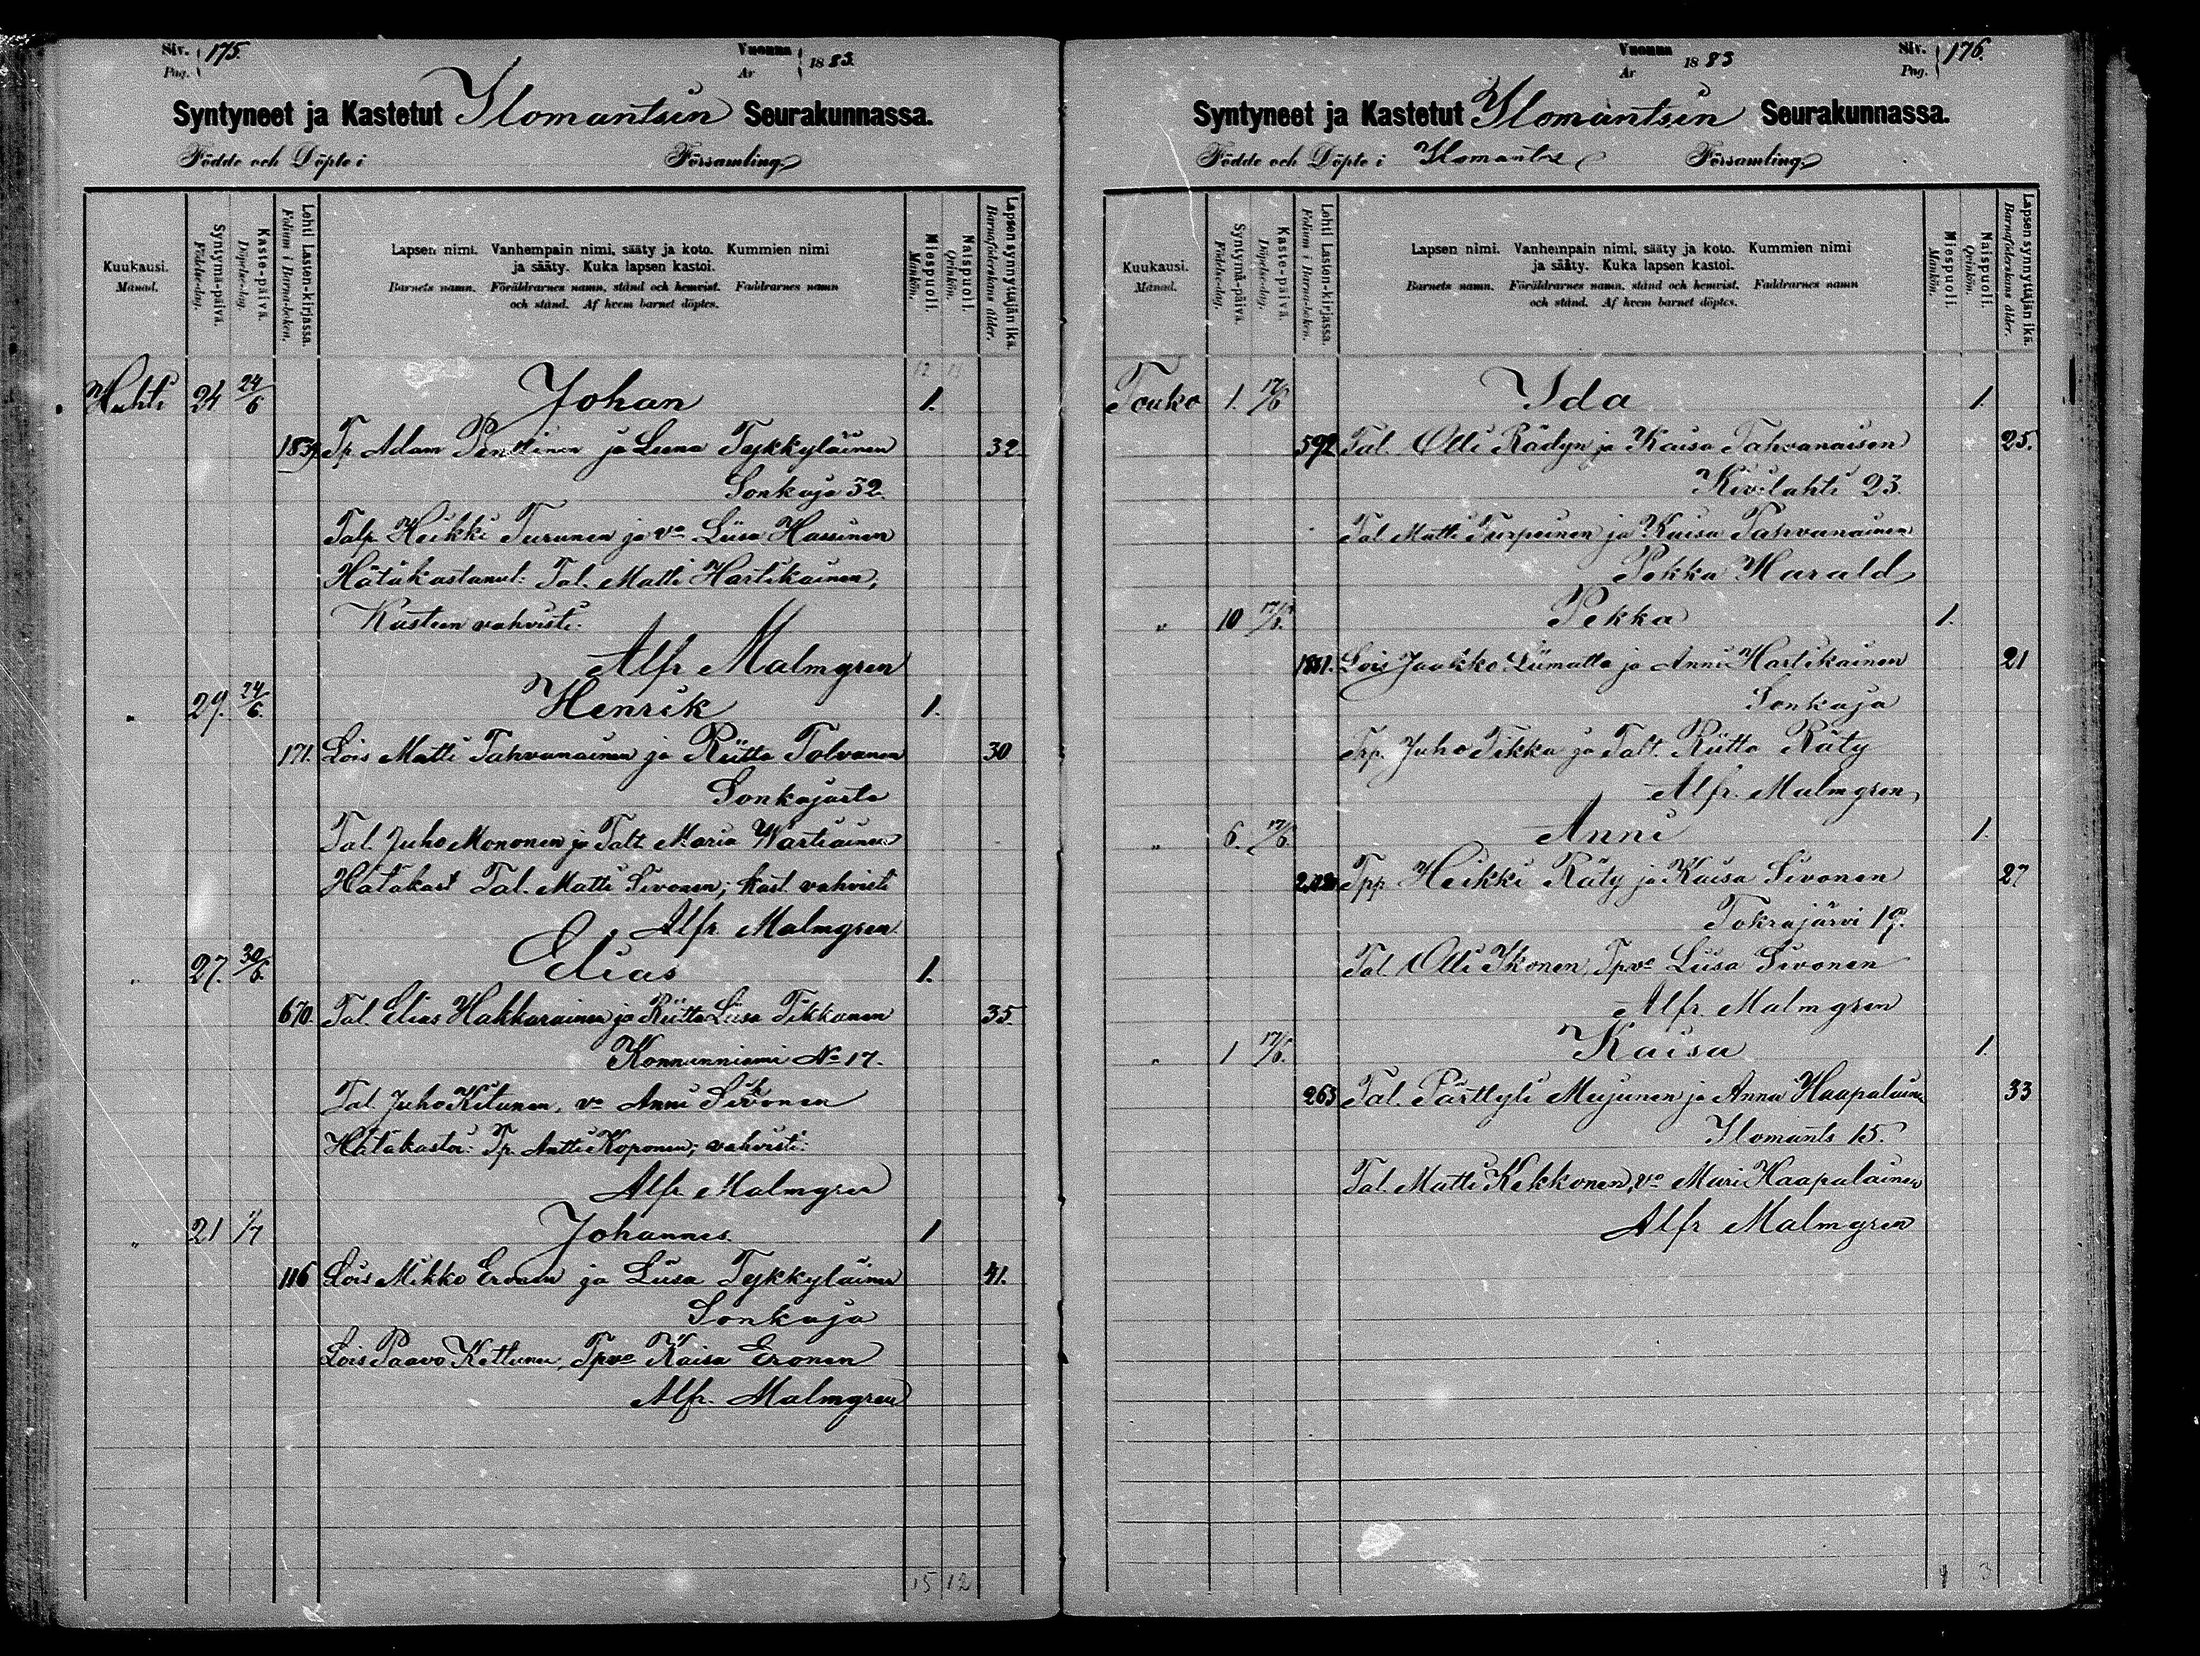 Siv. 175.
Pag.
Vuonna 1883.
År
Syntyneet ja Kastetut Ilomantsin Seurakunnassa.
Födde och Döpte i Församling.
Kuukausi. Månad.
Syntymä-päivä. Födelse-dag.
Kaste-päivä. Döpelse-dag.
Lehti Lasten-kirjassa. Folium i Barna-boken.
Lapsen nimi. Vanhempain nimi, sääty ja koto. Kummien nimi
ja sääty. Kuka lapsen kastoi.
Barnets namn. Föräldrarnes namn, stånd och hemvist. Faddrarnes namn
och stånd. Af hvem barnet döptes.
Miespuoli. Mankön.
Naispuoli. Qvinkön.
Lapsen synnyttäjän ikä. Barnaföderskans ålder.
12 11
Huhti 24 24/6 Johan 1.
1839. Tp. Adam Penttinen ja Leena Tykkyläinen 32
Sonkaja 32.
Talp. Heikki Turunen ja vo Liisa Hassinen
Hätäkastanut: Tal. Matti Hartikainen,
Kasteen vahvisti:
Alfr Malmgren
" 29. 24/6. Henrik 1.
171. Lois Matti Tahvanainen ja Riitta Tolvanen 30
Sonkajasta
Tal. Juho Mononen ja Talt. Maria Wartiainen
Hätäkast Tal. Matti Sivonen; kast. vahvisti
Alfr. Malmgren
" 27. 30/6. Elias 1.
670. Tal. Elias Hakkarainen ja Riitta Liisa Tikkanen 35.
Konnunniemi No 17.
Tal. Juho Kitunen, vo Anni Sivonen
Hätäkastoi: Tp. Antti Koponen; vahvisti:
Alfr Malmgren
" 21 1/7 Johannes. 1
116 Lois Mikko Eronen ja Liisa Tykkyläinen 41.
Sonkaja
Lois Paavo Kettunen, Tpvo Kaisa Eronen
Alfr. Malmgren
15 12
Siv. 176.
Pag.
Vuonna 1883
År
Syntyneet ja Kastetut Ilomantsin Seurakunnassa.
Födde och Döpte i Ilomants Församling.
Kuukausi. Månad.
Syntymä-päivä. Födelse-dag.
Kaste-päivä. Döpelse-dag.
Lehti Lasten-kirjassa. Folium i Barna-boken.
Lapsen nimi. Vanhempain nimi, sääty ja koto. Kummien nimi
ja sääty. Kuka lapsen kastoi.
Barnets namn. Föräldrarnes namn, stånd och hemvist. Faddrarnes namn
och stånd. Af hvem barnet döptes.
Miespuoli. Mankön.
Naispuoli. Qvinkön.
Lapsen synnyttäjän ikä. Barnaföderskans ålder.
Touko 1. 17/6 Ida 1.
592 Tal. Olli Rädyn ja Kaisa Tahvanaisen 25.
Kivilahti 23.
Tal Matti Turpeinen ja Kaisa Tahvanainen
Pekka Harald
" 10 Pekka 1.
Lois Jaakko Liimatta ja Anni Hartikainen 21
Sonkaja
Tpp. Juho Tikka ja Talt. Riitta Räty
Alfr. Malmgren
" 6. 17/6. Anni 1.
Tpp Heikki Räty ja Kaisa Sivonen 27
Tokrajärvi 19.
Tal Olli Ikonen, Tpvo Liisa Sivonen
Alfr Malmgren
" 1 17/6. Kaisa 1.
263 Tal. Pärttyli Mujunen ja Anna Haapalainen 33
Ilomants 15.
Tal. Matti Kekkonen, vo Mari Haapalainen
Alfr Malmgren
1 3